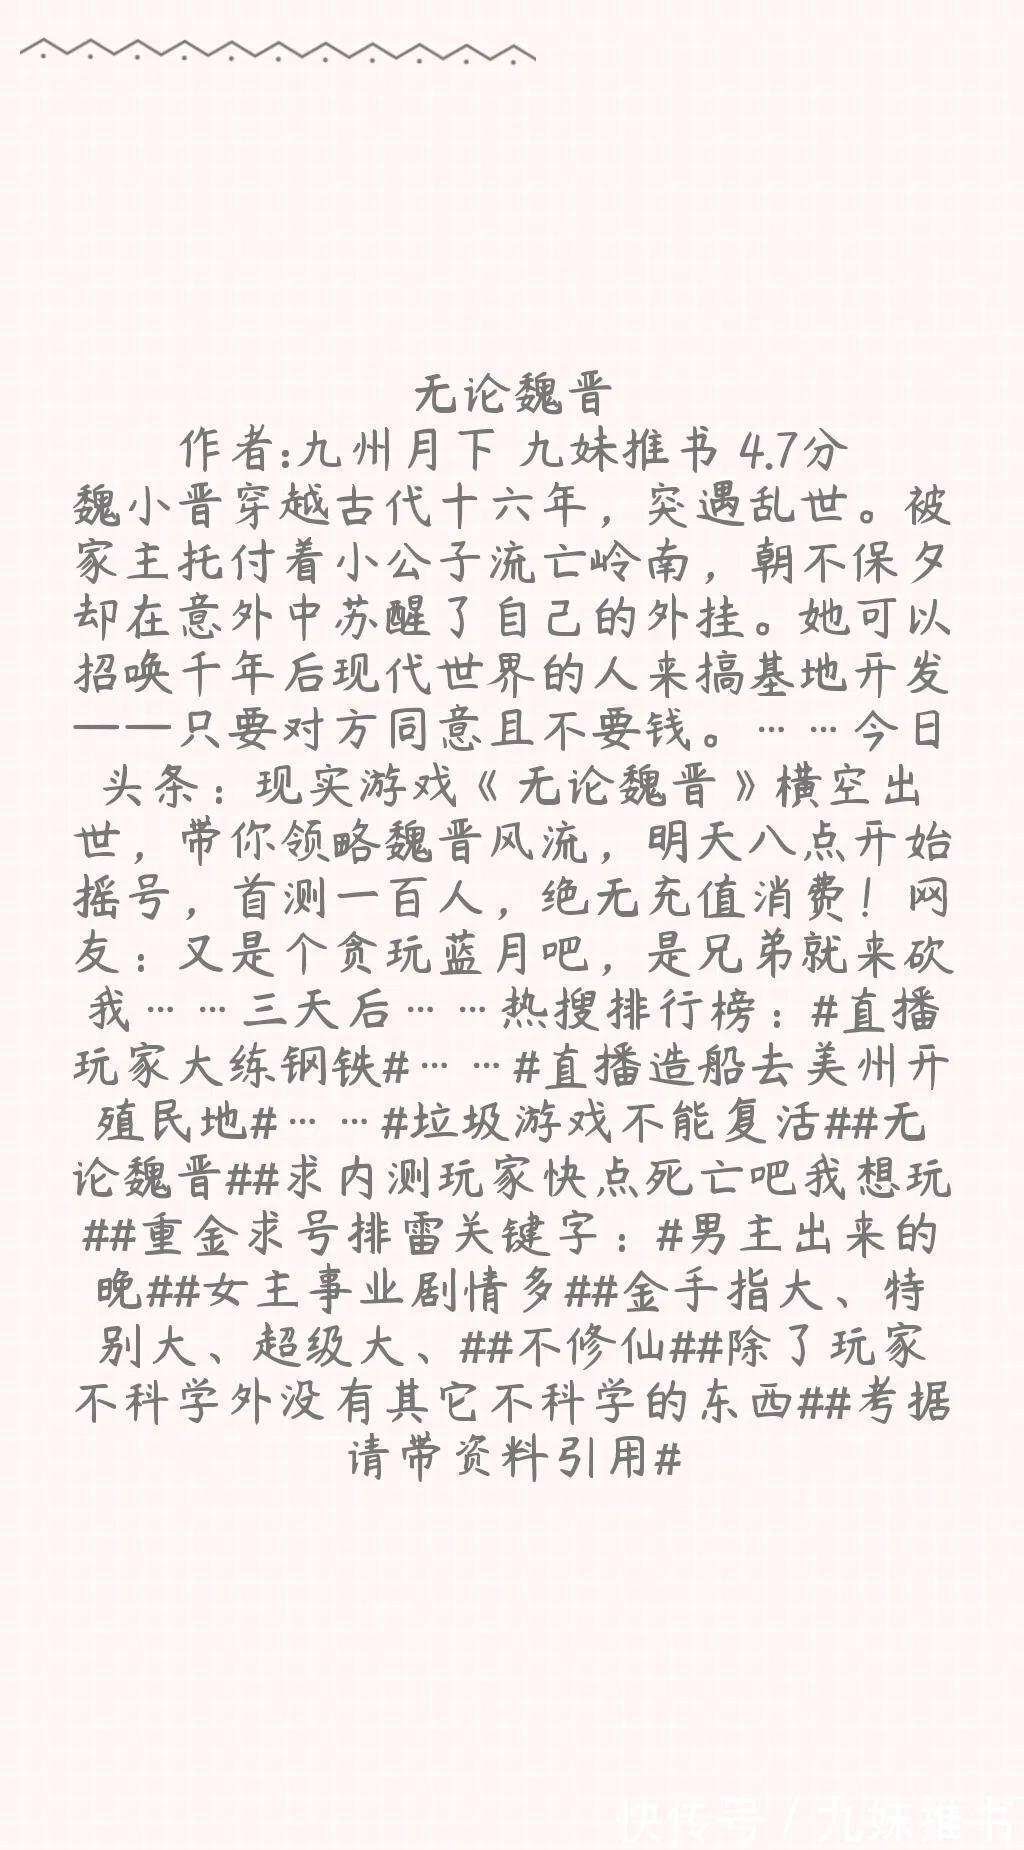 无论魏晋
作者:九州月下 九妹推书 4.7分
魏小晋穿越古代十六年，突遇乱世。被
家主托付着小公子流亡岭南，朝不保夕
却在意外中苏醒了自己的外挂。她可以
招唤千年后现代世界的人来搞基地开发
——只要对方同意且不要钱。……今日
头条：现实游戏《无论魏晋》横空出
世，带你领略魏晋风流，明天八点开始
摇号，首测一百人，绝无充值消费！网
友：又是个贪玩蓝月吧，是兄弟就来砍
我……三天后……热搜排行榜：#直播
玩家大练钢铁#……#直播造船去美州开
殖民地#……#垃圾游戏不能复活##无
论魏晋##求内测玩家快点死亡吧我想玩
##重金求号排雷关键字：#男主出来的
晚##女主事业剧情多##金手指大、特
别大、超级大、##不修仙##除了玩家
不科学外没有其它不科学的东西##考据
请带资料引用#
快传号 / 九妹推书